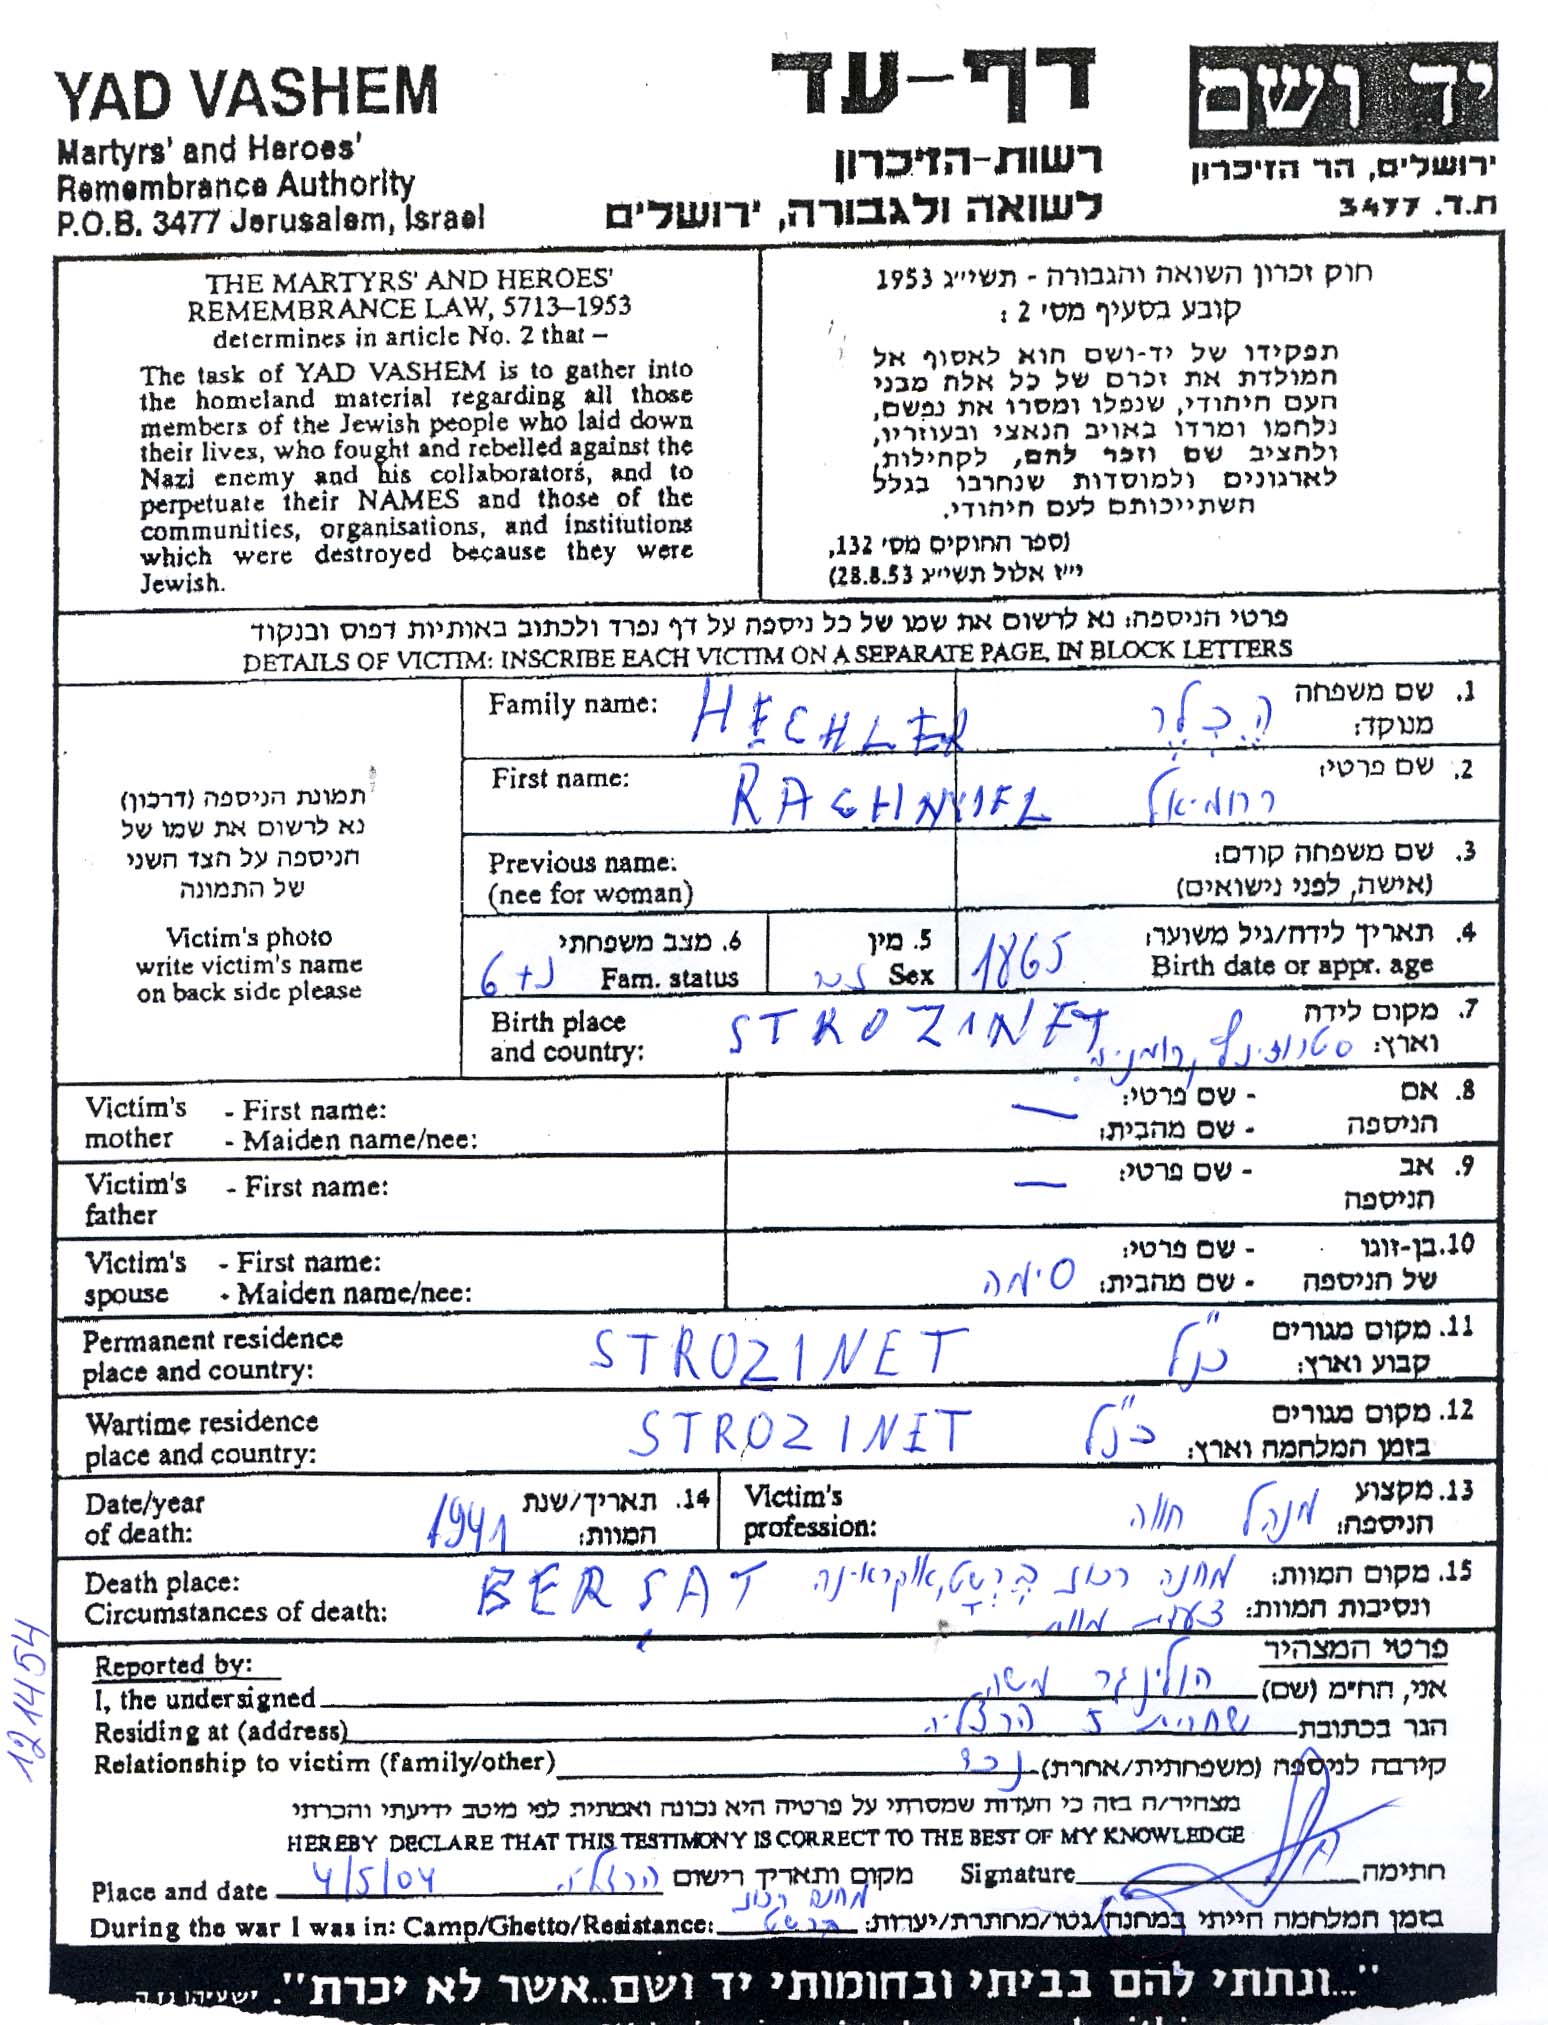 YAD VASHEM
Martyrs' and Heroes'
Remembrance Authority
P.O.B. 3477 Jerusalem, Israel
דף-עד
רשות-הזיכרון
לשואה ולגבורה, ירושלים
יד ושם
ירושלים, הר הזיכרון
ת.ד. 3477
THE MARTYRS' AND HEROES'
REMEMBRANCE LAW, 5713–1953
determines in article No. 2 that –
The task of YAD VASHEM is to gather into
the homeland material regarding all those
members of the Jewish people who laid down
their lives, who fought and rebelled against the
Nazi enemy and his collaborators, and to
perpetuate their NAMES and those of the
communities, organisations, and institutions
which were destroyed because they were
Jewish.
חוק זכרון השואה והגבורה - תשי״ג 1953
קובע בסעיף מס׳ 2 :
תפקידו של יד-ושם הוא לאסוף אל
המולדת את זכרם של כל אלה מבני
העם היהודי, שנפלו ומסרו את נפשם,
נלחמו ומרדו באויב הנאצי ובעוזריו,
ולהציב שם וזכר להם, לקהילות,
לארגונים ולמוסדות שנחרבו בגלל
השתייכותם לעם היהודי.
(ספר החוקים מס׳ 132,
י״ז אלול תשי״ג 28.8.53)
פרטי הניספה: נא לרשום את שמו של כל ניספה על דף נפרד ולכתוב באותיות דפוס ובנקוד
DETAILS OF VICTIM: INSCRIBE EACH VICTIM ON A SEPARATE PAGE, IN BLOCK LETTERS
תמונת הניספה (דרכון)
נא לרשום את שמו של
הניספה על הצד השני
של התמונה
Victim's photo
write victim's name
on back side please
Family name: HECHLER הֶכְלֶר 1. שם משפחה
מנוקד:
First name: RACHMIEL ירחמיאל 2. שם פרטי:
Previous name:
(nee for woman)
3. שם משפחה קודם:
(אישה, לפני נישואים)
6. מצב משפחתי
Fam. status נ+6
5. מין
Sex זכר
4. תאריך לידה/גיל משוער:
Birth date or appr. age 1865
Birth place
and country: STROZINET
7. מקום לידה
וארץ: סטרוז׳ינץ, רומניה
Victim's - First name:
mother - Maiden name/nee:
8. אם - שם פרטי: —
הניספה - שם מהבית:
Victim's - First name:
father
9. אב - שם פרטי: —
הניספה
Victim's - First name:
spouse - Maiden name/nee:
10. בן-זוגו - שם פרטי:
של הניספה - שם מהבית: סימה
Permanent residence
place and country: STROZINET
11. מקום מגורים
קבוע וארץ: כנ״ל
Wartime residence
place and country: STROZINET
12. מקום מגורים
בזמן המלחמה וארץ: כנ״ל
Date/year
of death: 1941
14. תאריך/שנת
המוות:
Victim's
profession:
13. מקצוע
הניספה: מנהל חווה
Death place:
Circumstances of death: BERSAT
15. מקום המוות: מחנה רכוז בֶּרְשָׁט, אוקראינה
ונסיבות המוות: צעדת מוות
Reported by:
פרטי המצהיר
I, the undersigned הולינגר משה אני, הח״מ (שם)
Residing at (address) 5 הרצליה הגר בכתובת
Relationship to victim (family/other) נכד קירבה לניספה (משפחתית/אחרת)
מצהיר/ה בזה כי העדות שמסרתי על פרטיה היא נכונה ואמתית לפי מיטב ידיעתי והכרתי
HEREBY DECLARE THAT THIS TESTIMONY IS CORRECT TO THE BEST OF MY KNOWLEDGE
Place and date 4/5/04 הרצליה מקום ותאריך רישום Signature חתימה
During the war I was in: Camp/Ghetto/Resistance: מחנה רכוז ברשט בזמן המלחמה הייתי במחנה/גטו/מחתרת/יערות:
"...ונתתי להם בביתי ובחומותי יד ושם..אשר לא יכרת".
121454